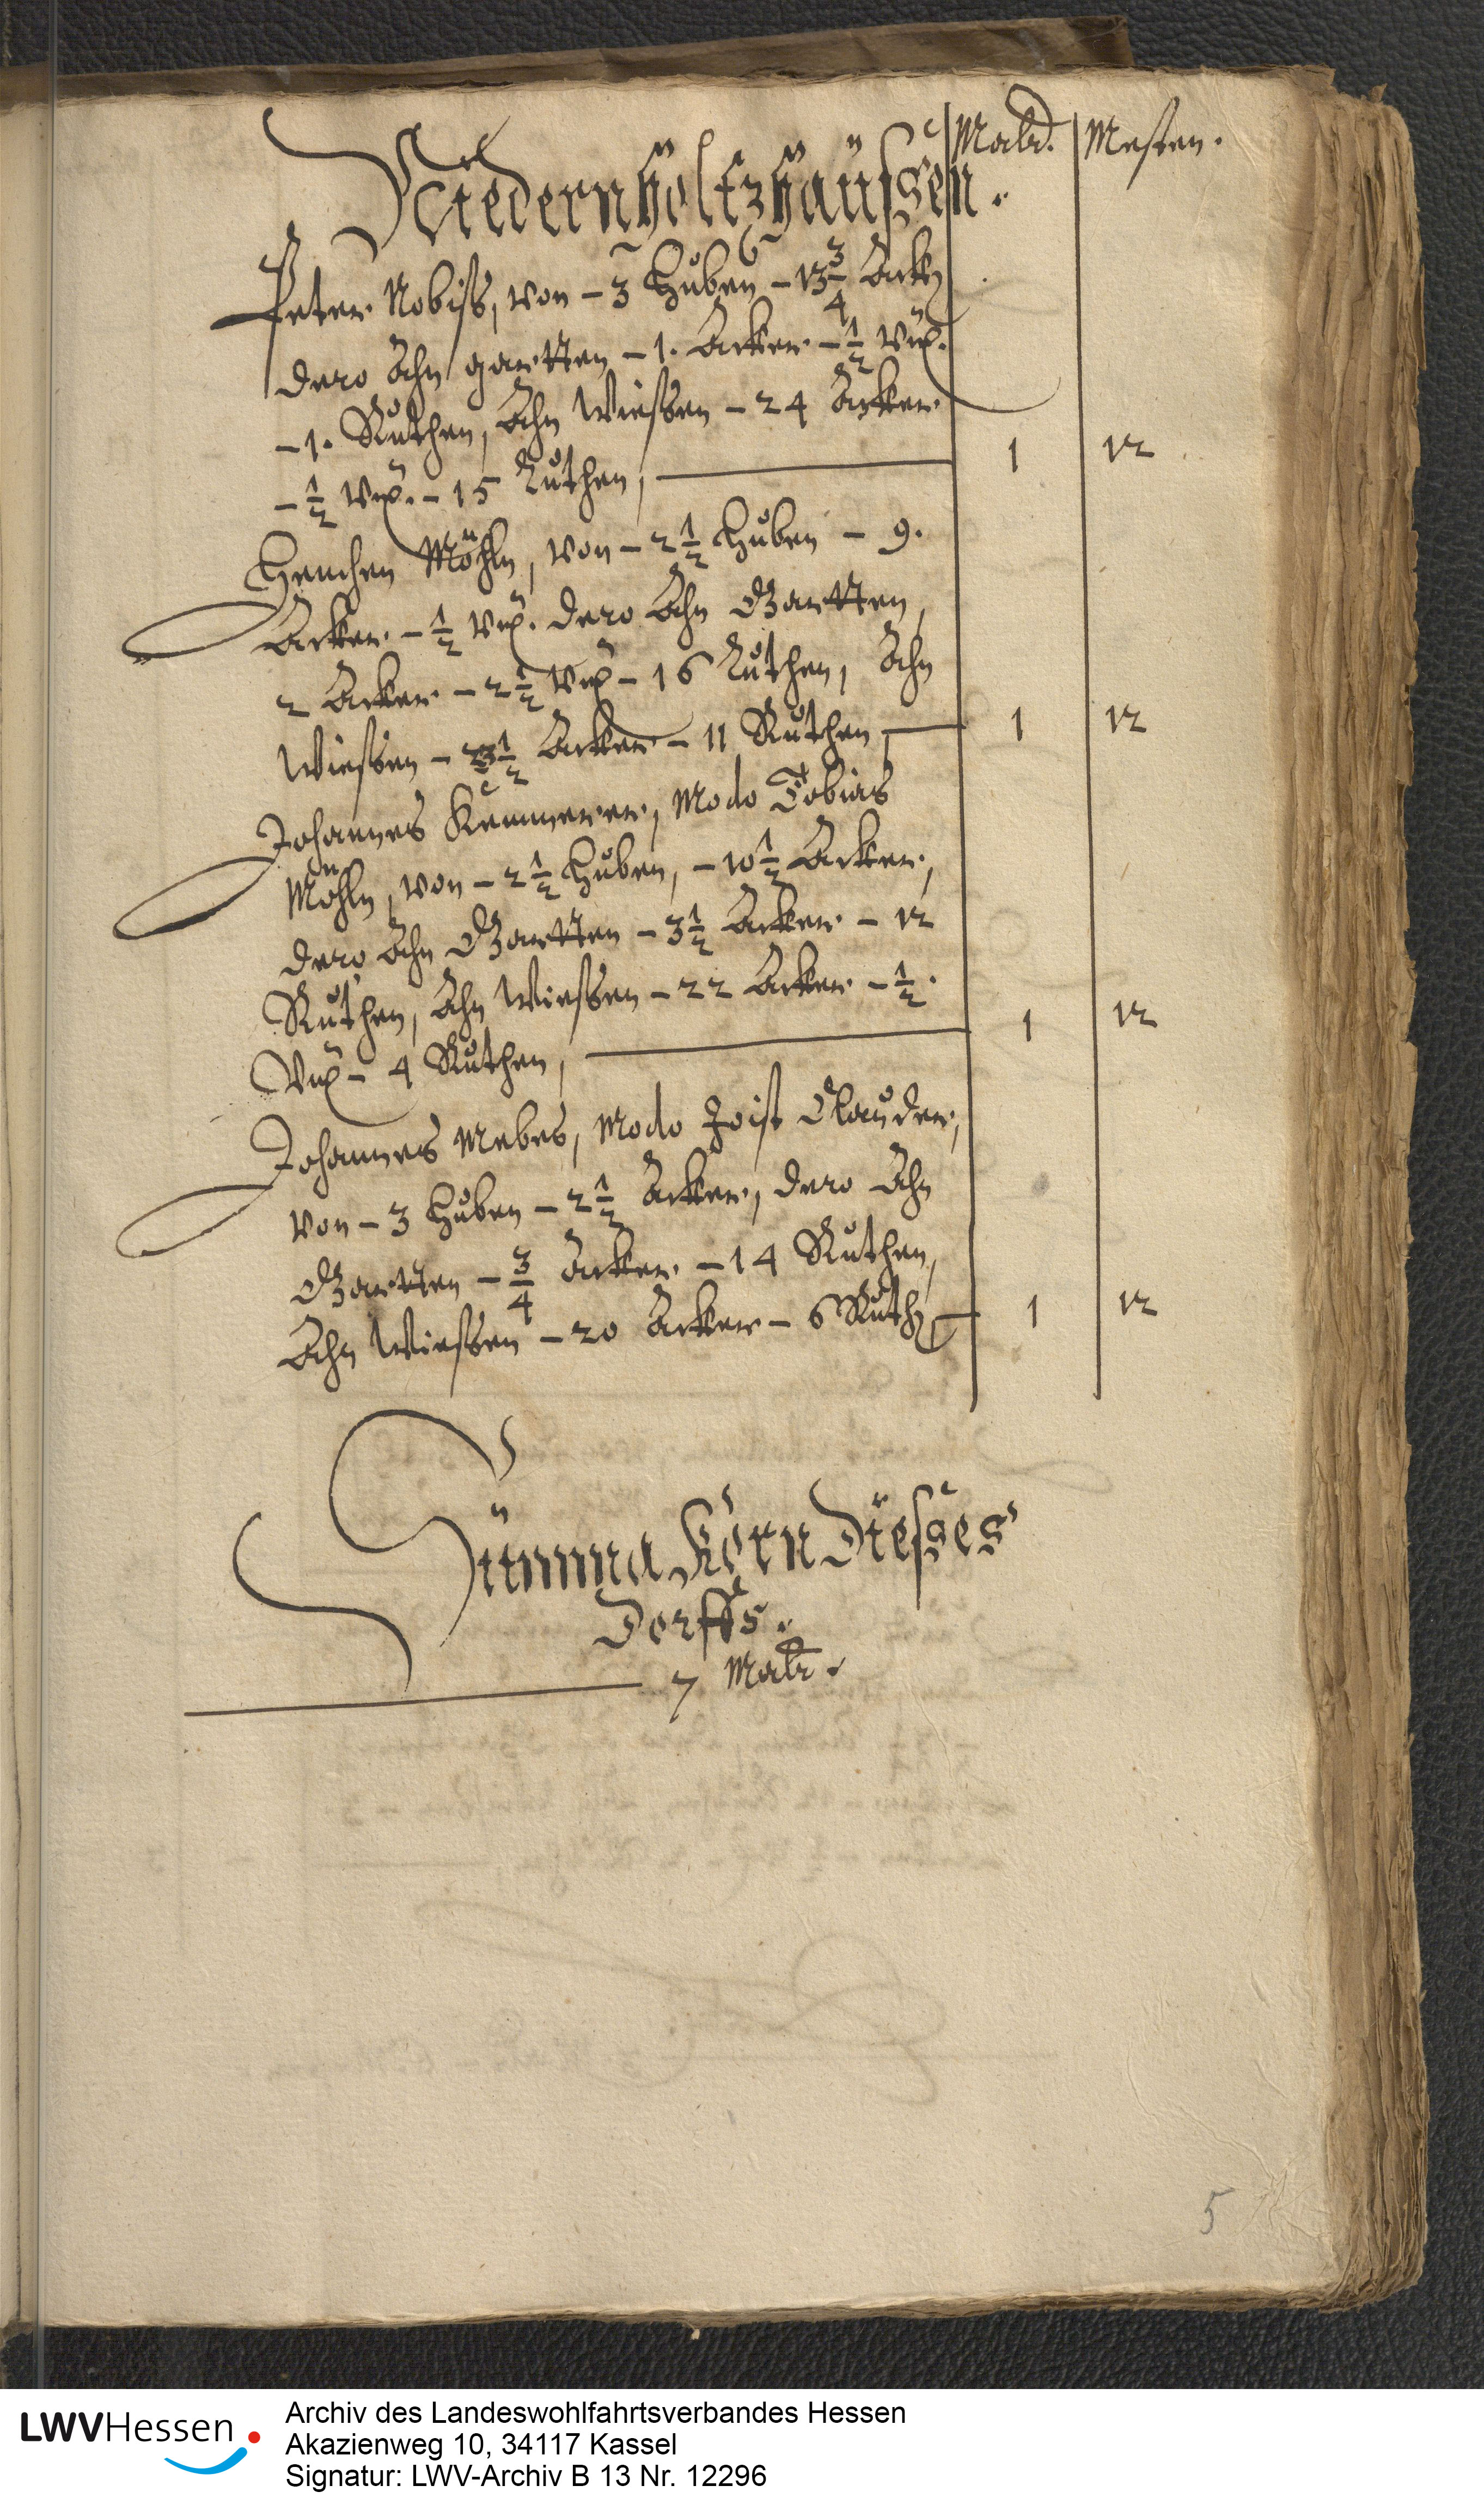 Mald. Mesten.
Niedernholtzhaußen.
Peter Nobiß, von – 3 Huben – 13 3/4 Acker
dero Ahn gartten – 1. Acker – 1/2
– 1. Ruthen, Ahn Wießen – 24 Acker
– 1/2 – 15 Ruthen, 1 12
Henchen Möhln, von – 2 1/2 Huben – 9.
Acker – 1/2 dero Ahn Gartten,
2 Acker – 2 1/2 – 16 Ruthen, Ahn
Wießen – 1/2 Acker – 11 Ruthen, 1 12
Johannes Kemmerer, Modo Tobias
Möhln, von – 2 1/2 Huben, – 10 1/2 Acker,
dero Ahn Gartten – 3 1/2 Acker – 12
Ruthen, Ahn Wießen – 22 Acker – 1/2.
– 4 Ruthen, 1 12
Johannes Mebes, Modo Joist Clauder,
von – 3 Huben – 2 1/2 Acker, dero Ahn
Gartten – 3/4 Acker – 14 Ruthen,
Ahn Wießen – 20 Acker – 6 Ruth 1 12
Summa Korn Dießes
Dorffs.
7 Mald.
5
LWVHessen
Archiv des Landeswohlfahrtsverbandes Hessen
Akazienweg 10, 34117 Kassel
Signatur: LWV-Archiv B 13 Nr. 12296